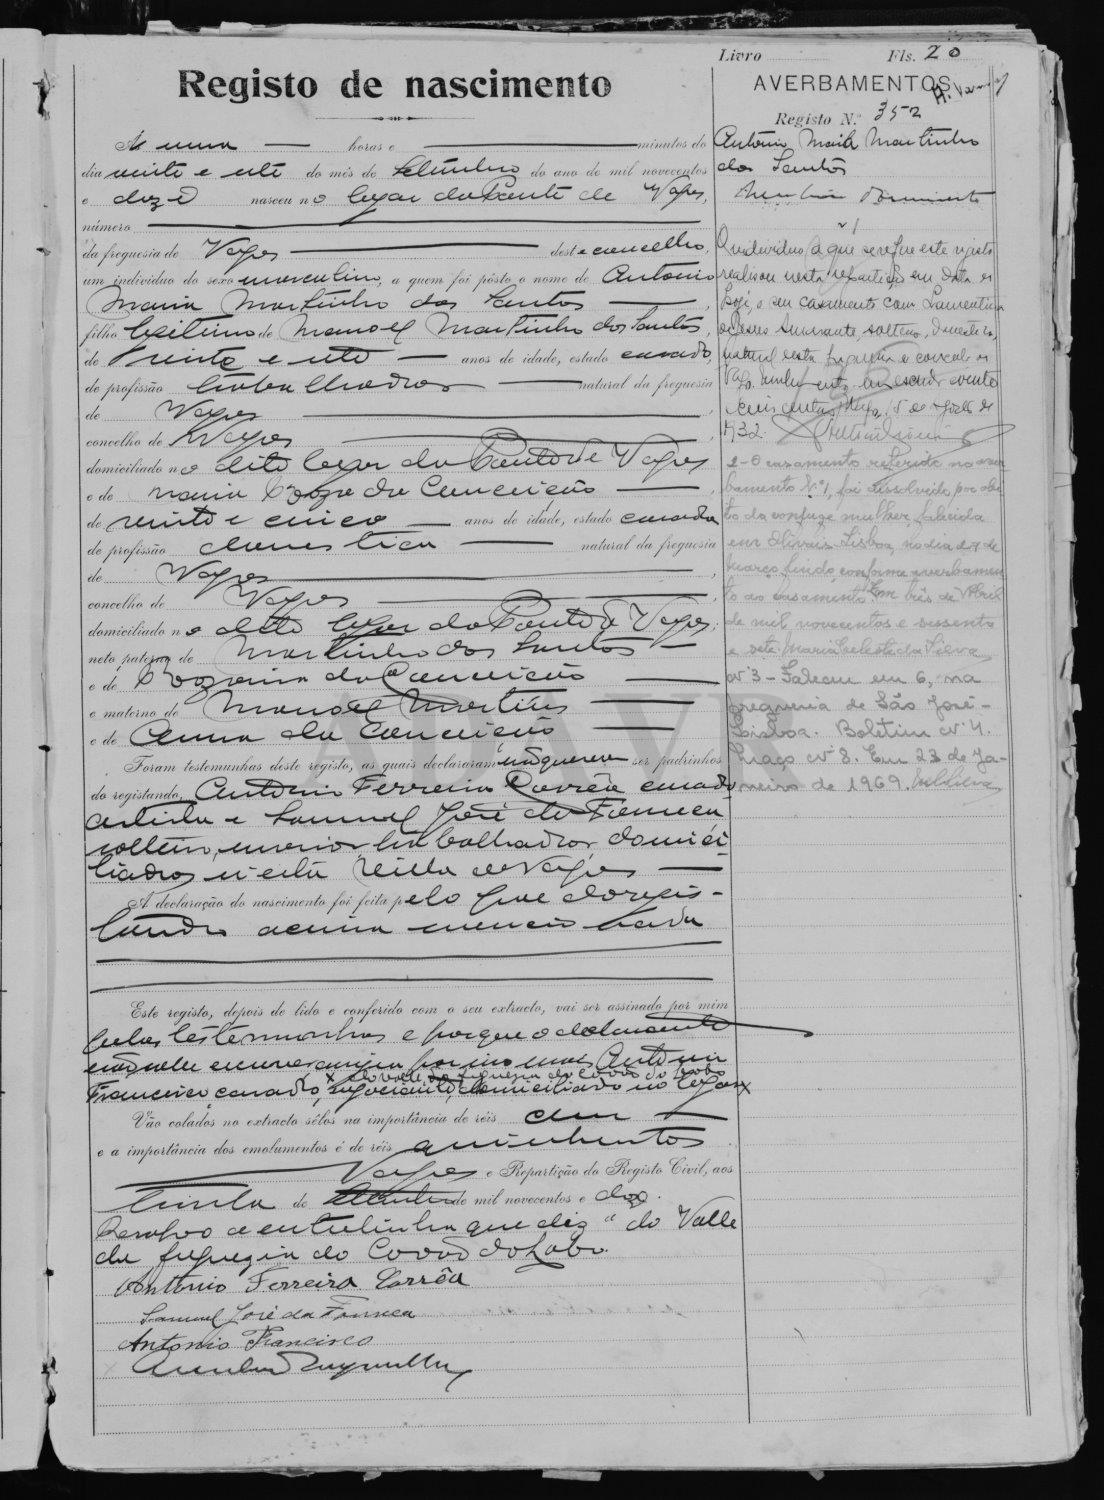 Livro Fls. 20
Registo de nascimento
AVERBAMENTOS
Registo N.º 352
Às uma horas e minutos do
dia vinte e sete do mês de Setembro do ano de mil novecentos
e doze nasceu no logar da Ponte de Vagos,
número
da freguesia de Vagos deste concelho,
um individuo do sexo masculino, a quem foi pôsto o nome de António
Maria Martinho dos Santos
filho legitimo de Manoel Martinho dos Santos,
de vinte e oito anos de idade, estado casado,
de profissão trabalhador natural da freguesia
de Vagos,
concelho de Vagos
domiciliado no dito logar da Ponte de Vagos
e de Maria Roza da Conceição,
de vinte e cinco anos de idade, estado casada
de profissão domestica natural da freguesia
de Vagos,
concelho de Vagos,
domiciliado no dito logar da Ponte de Vagos;
neto paterno de Martinho dos Santos
e de da Conceição
e materno de Manoel Martins
e de Anna da Conceição
Foram testemunhas deste registo, as quais declararam não querer ser padrinhos
do registando, António Ferreira Corrêa casado
artista e Samuel José da Fonseca
solteiro, maior trabalhador domici-
liados n'esta Villa de Vagos
A declaração do nascimento foi feita pelo pae do regis-
tando acima mencionado
Este registo, depois de lido e conferido com o seu extracto, vai ser assinado por mim
pelas testemunhas e porque o declarante
não sabe escrever assina por ele António
x do Valle da freguezia do Covão do Lobo
Francisco casado, negociante, domiciliado no logar x
Vão colados no extracto sêlos na importância de réis cem
e a importância dos emolumentos é de réis quinhentos
Vagos e Repartição do Registo Civil, aos
trinta de Setembro de mil novecentos e doze.
Resalvo a entrelinha que diz "do Valle
da freguezia do Covão do Lobo.
António Ferreira Corrêa
Samuel José da Fonseca
Antonio Francisco
António Maria Martinho
dos Santos
Nº 1
O individuo a que se refere este registo
realisou nesta repartição em data de
hoje, o seu casamento com Laurentina
de Jesus, solteira, domestica,
natural desta freguesia e concelho de
Vagos
1932.
2 - O casamento referido no aver-
bamento Nº 1, foi dissolvido por obi-
to da conjuge mulher, falecida
em Olivais - Lisboa, no dia 27 de
Março findo, conforme averbamen-
to ao casamento. Em três de Abril
de mil novecentos e sessenta
e sete. Maria Celeste da Silva
Nº 3 - Faleceu em 6, na
freguesia de São José -
Lisboa. Boletim Nº 4.
Maço Nº 8. Em 23 de Ja-
neiro de 1969.
ADAVR